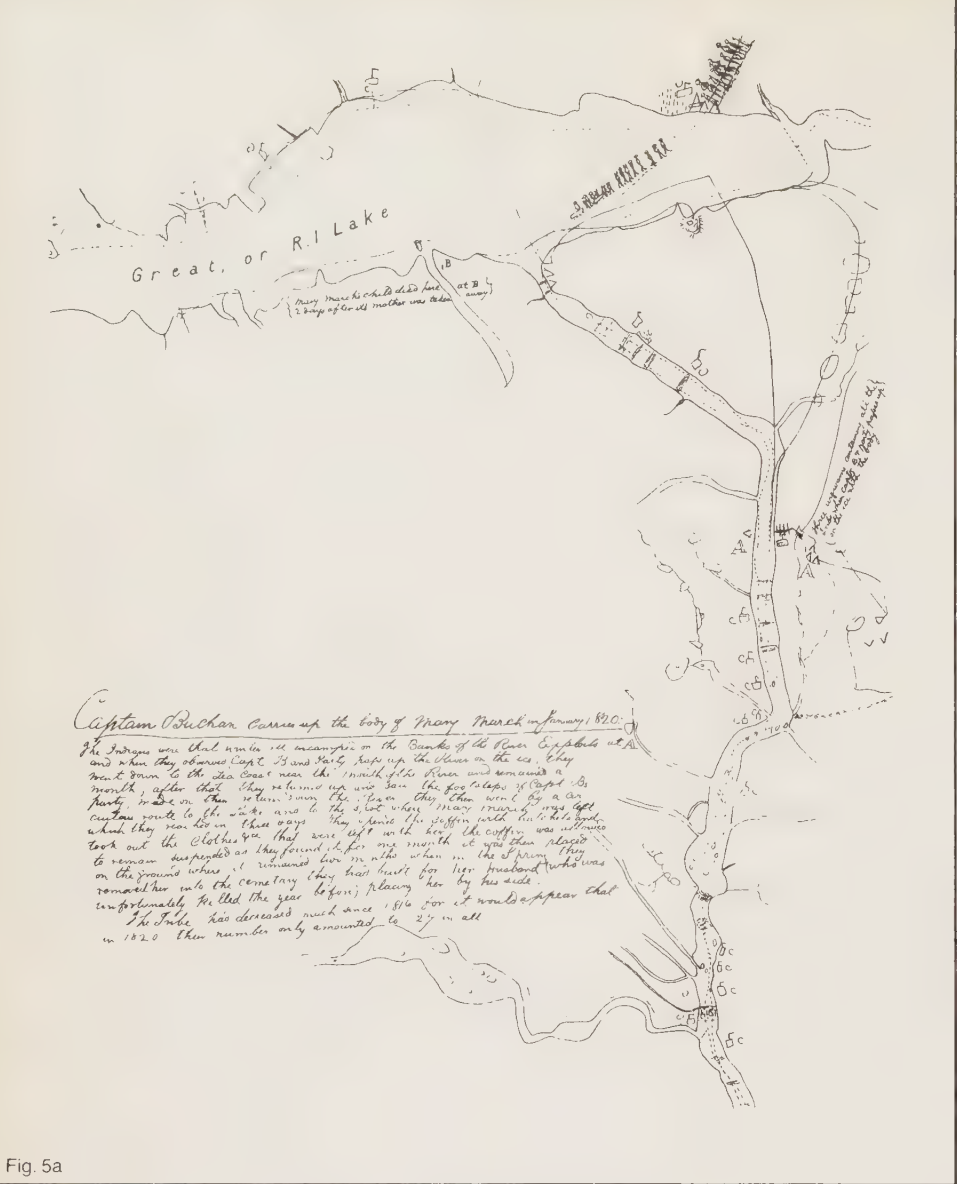 Great, or R.I Lake
B
Mary March's child died here at B
2 days after its mother was taken away
three wigwams containing all the
when Capt B & party passed up
on the ice with the body
Captain Buchan carries up the body of Mary March in January 1820.
The Indians were that winter all encamped on the Banks of the River Exploits at A
and when they observed Capt B and Party pass up the River on the ice, they
went down to the Sea Coast near the mouth of the River and remained a
month, after that they returned up and saw the footsteps of Capt. Bs
party, made on their return down the River they then went by a cir
cuitous route to the Lake and to the spot where Mary March was left
which they reached in three days They opened the coffin with hatchets and
took out the Clothes &ca that were left with her the coffin was
to remain suspended as they found it for one month it was then placed
on the ground where it remained two months when in the Spring they
removed her into the cemetery they had built for her Husband who was
unfortunately killed the year before; placing her by his side.
The Tribe has decreased much since 1816 for it would appear that
in 1820 their number only amounted to 27 in all
A
C
C
C
C
C
C
C
C
Fig. 5a